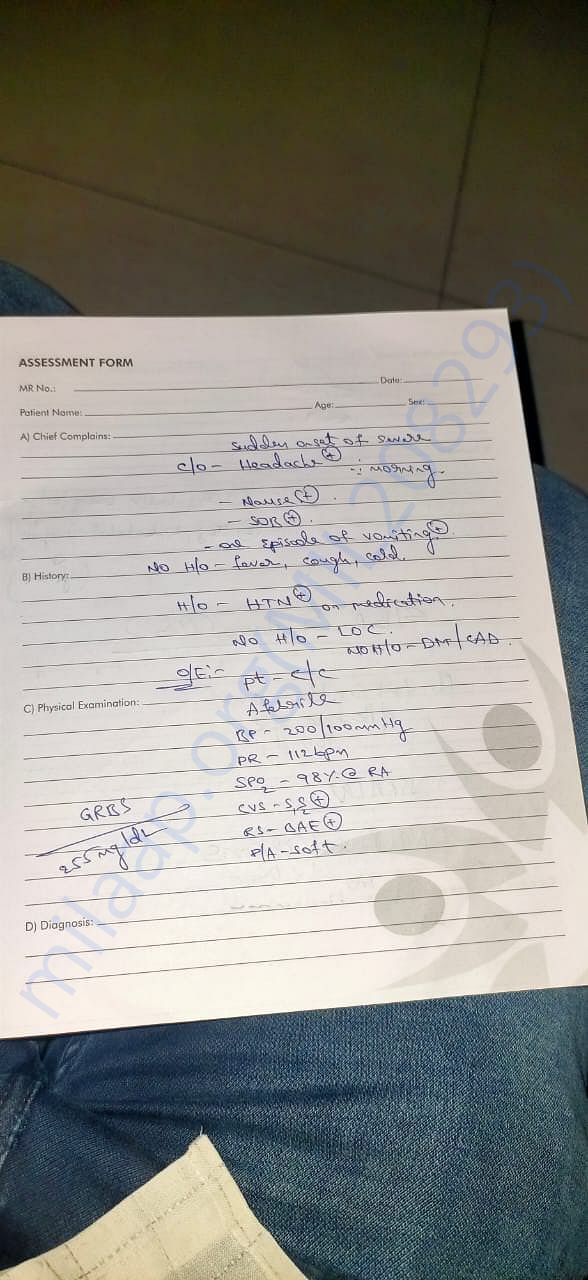 ASSESSMENT FORM
MR No.: Date:
Patient Name: Age: Sex:
A) Chief Complains: sudden onset of severe
c/o - Headache (+) ∵ morning.
- Nause (+).
- SOB (+).
- one Episode of vomiting (+).
NO H/o - fever, cough, cold.
B) History:
H/o - HTN (+) on medication.
NO H/o - LOC.
NO H/o - DM/CAD.
O/E:- pt - c/c
C) Physical Examination: Afebrile
BP - 200/100mmHg
PR - 112bpm
SPO2 - 98% @ RA
CVS - S1S2 (+)
RS - BAE (+)
P/A - soft.
GRBS
255mg/dL
D) Diagnosis:
milaap.org(MIL208293)